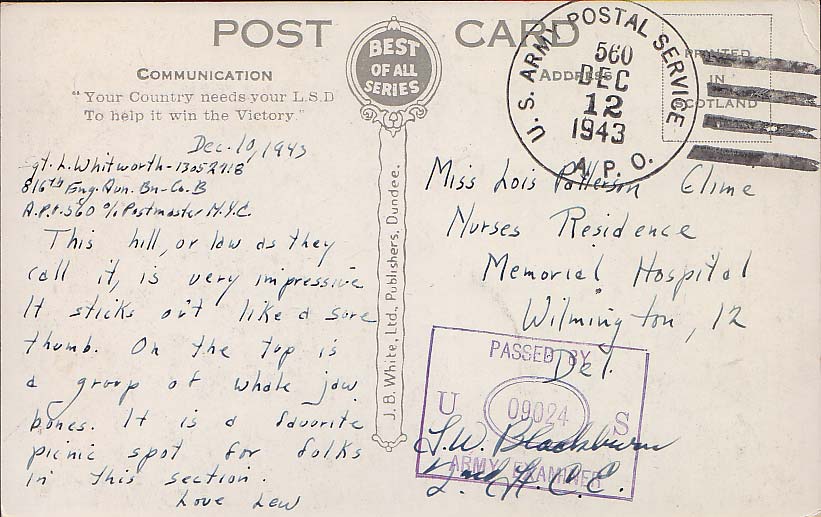 POST CARD
BEST
OF ALL
SERIES
COMMUNICATION
ADDRESS
"Your Country needs your L.S.D
To help it win the Victory."
PRINTED
IN
SCOTLAND
U.S. ARMY POSTAL SERVICE
560
DEC
12
1943
A.P.O.
Dec. 10, 1943
Sgt. L. Whitworth - 13052918
816th Eng. Avn. Bn - Co. B
A.P.O. 560 c/o Postmaster N.Y.C.
This hill, or law as they
call it, is very impressive
It sticks out like a sore
thumb. On the top is
a group of whale jaw
bones. It is a favorite
picnic spot for folks
in this section.
Love Lew
J. B. White, Ltd., Publishers, Dundee.
Miss Lois Patterson Clime
Nurses Residence
Memorial Hospital
Wilmington, 12
Del.
PASSED BY
U S
09024
ARMY EXAMINER
L.W. Blackburn